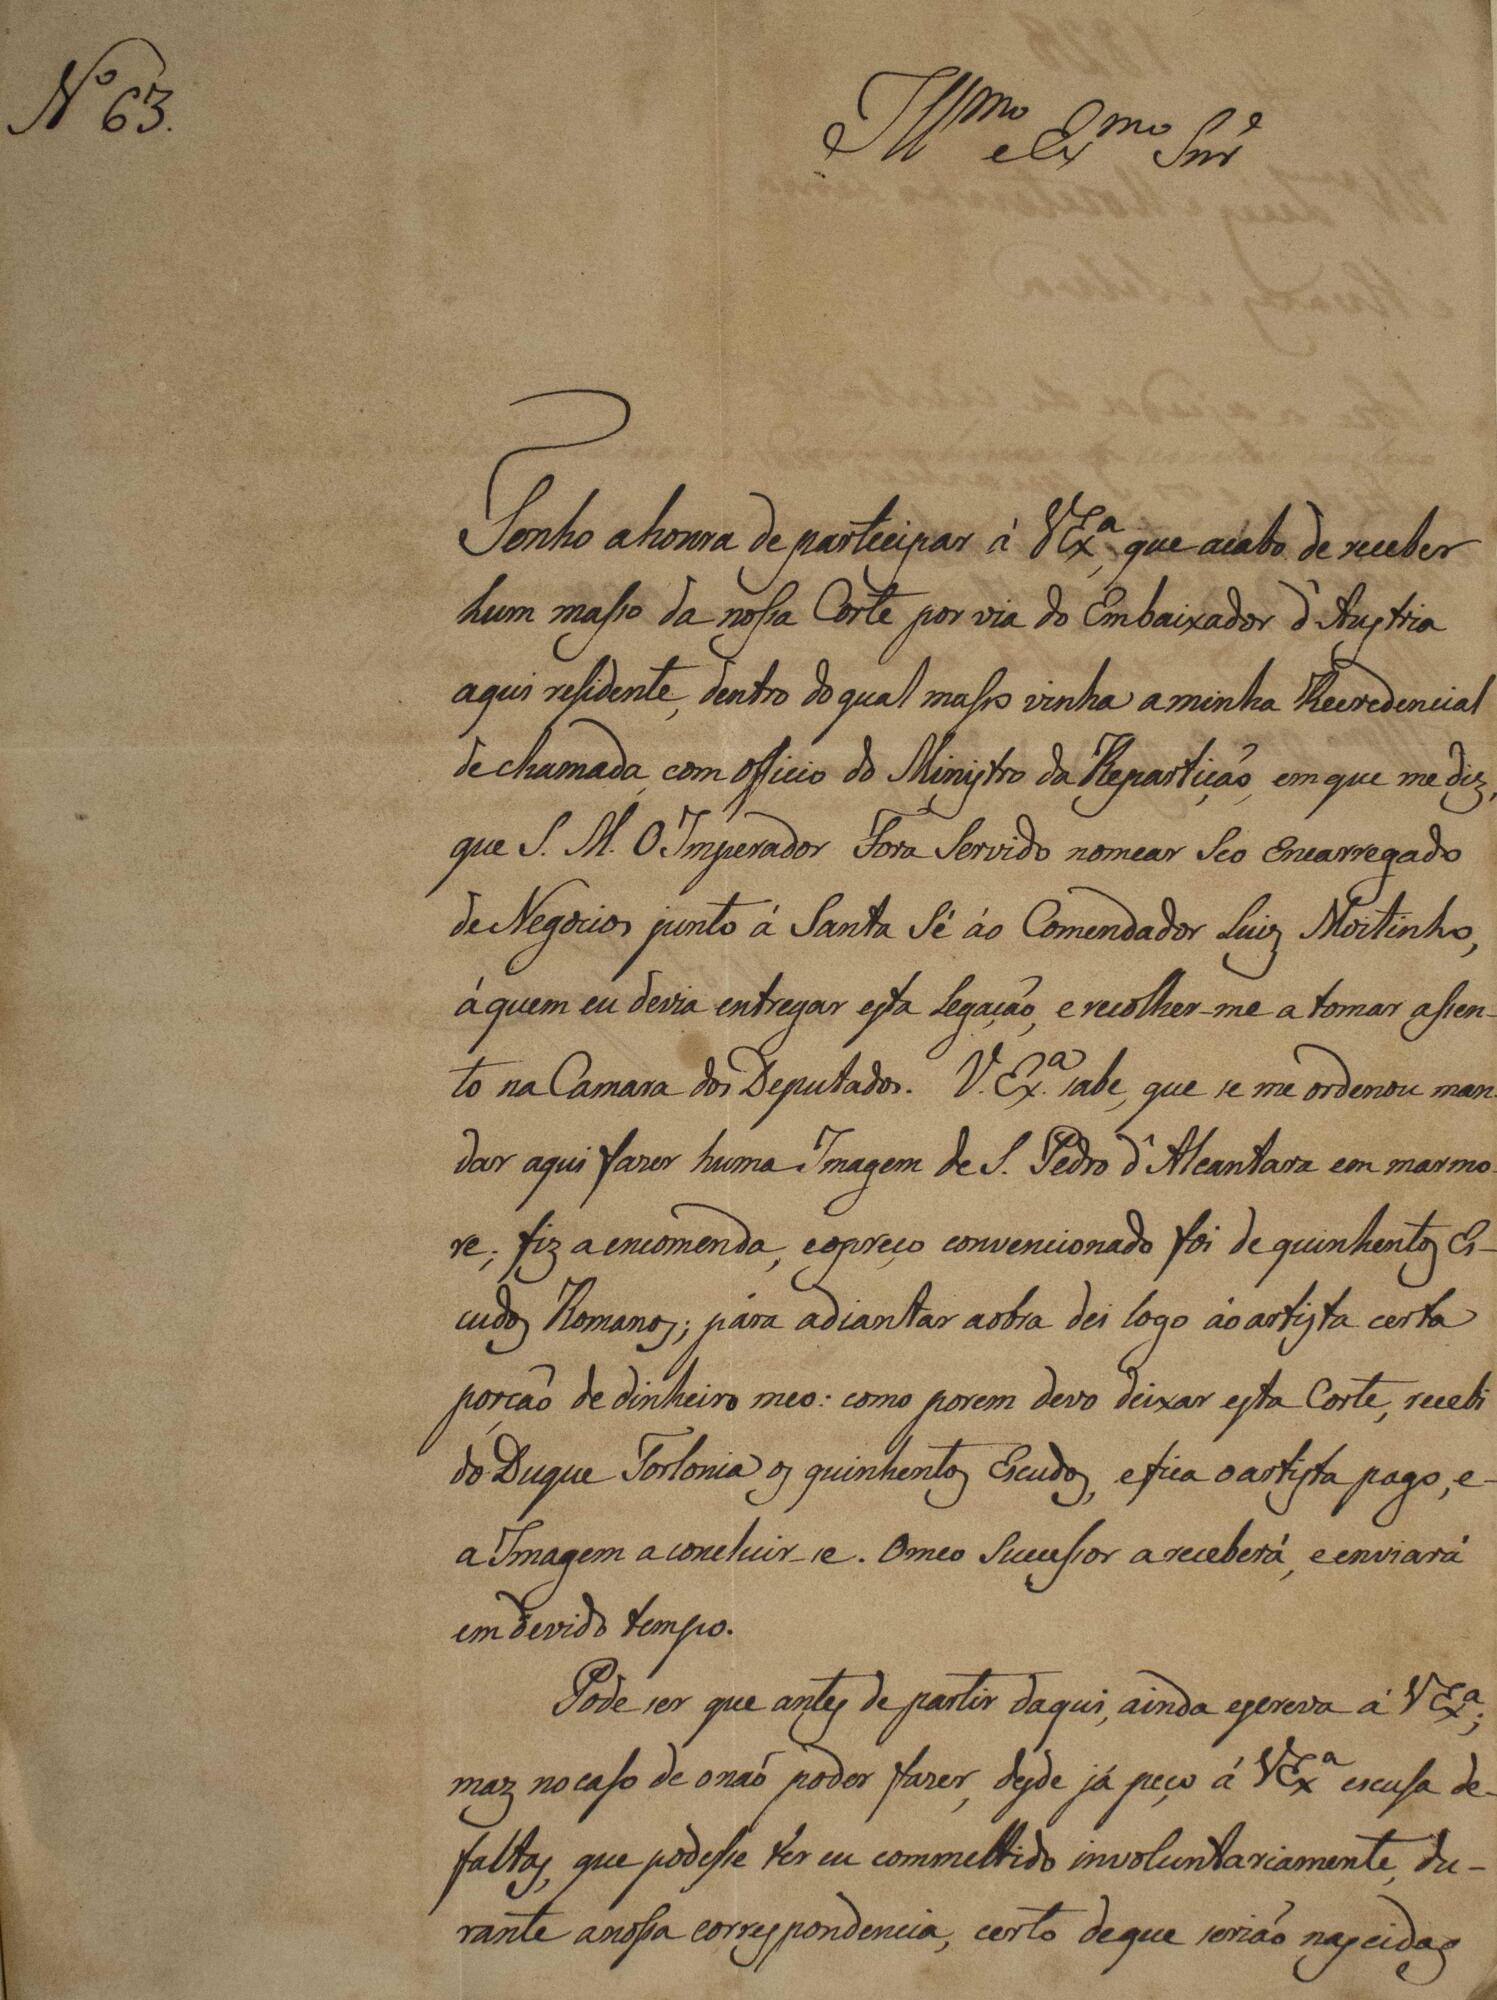 Nº 63.
Illmo e Exmo Snre
Tenho a honra de partecipar á VExª, que acabo de receber
hum masso da nossa Corte por via do Embaixador d'Austria
aqui residente, dentro do qual masso vinha a minha Recredencial
de chamada, com officio do Ministro da Repartição, em que me diz,
que S. M. O Imperador Fora Servido nomear Seo Encarregado
de Negocios junto á Santa Sé áo Comendador Luiz Moitinho,
á quem eu devia entregar esta Legação, e recolher-me a tomar assen-
to na Camara dos Deputados. V. Exª. sabe, que se me ordenou man-
dar aqui fazer huma Imagem de S. Pedro d'Alcantara em marmo-
re; fiz a encomenda, e o preço convencionado foi de quinhentos Es-
cudos Romanos; pára adiantar a obra dei logo áo artista certa
porção de dinheiro meo: como porem devo deixar esta Corte, recebi
do Duque Torlonia os quinhentos Escudos, e fica o artista pago, e-
a Imagem a concluir-se. O meo Sucessor a receberá, e enviará
em devido tempo.
Pode ser que antes de partir daqui, ainda escreva á VExª;
maz no caso de o naõ poder fazer, desde já peço á VExª escusa de-
faltas, que podesse ter eu commettido involuntariamente, du-
rante a nossa correspondencia, certo de que seriaõ nascidas